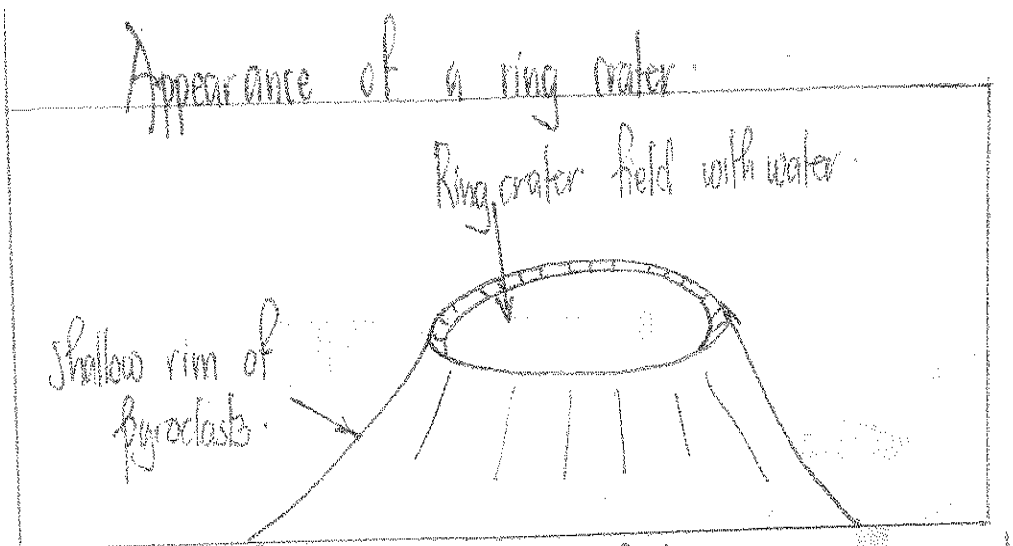 Appearance of a ring crater.
Ring crater field with water.
shallow rim of
pyroclasts.